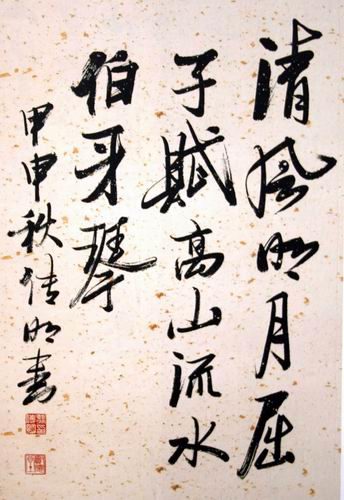 清风明月屈
子赋高山流水
伯牙琴
甲申秋倩明书